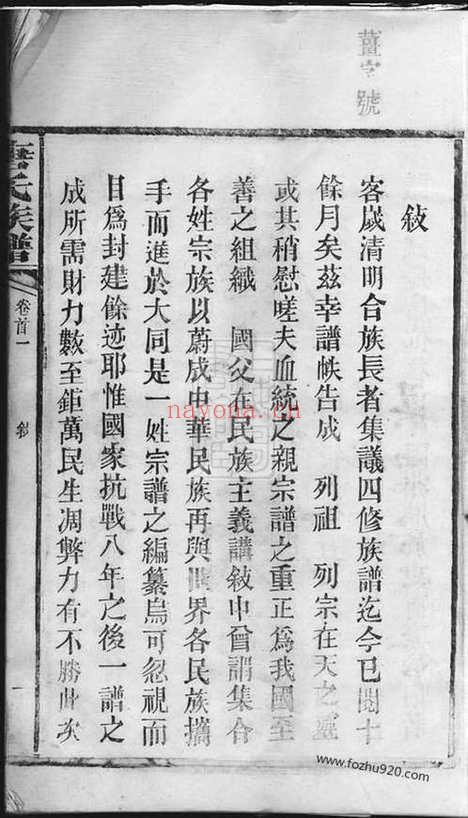 薑字號
敍
客歲清明合族長者集議四修族譜迄今已閱十
餘月矣茲幸譜帙告成　列祖　列宗在天之靈
或其稍慰嗟夫血統之親宗譜之重正為我國至
善之組織　國父在民族主義講敍中曾謂集合
各姓宗族以蔚成中華民族再與世界各民族攜
手而進於大同是一姓宗譜之編纂烏可忽視而
目為封建餘迹耶惟國家抗戰八年之後一譜之
成所需財力數至鉅萬民生凋弊力有不勝此次
氏族譜
卷首一
敍
一
nayona.cn
www.fozhu920.com